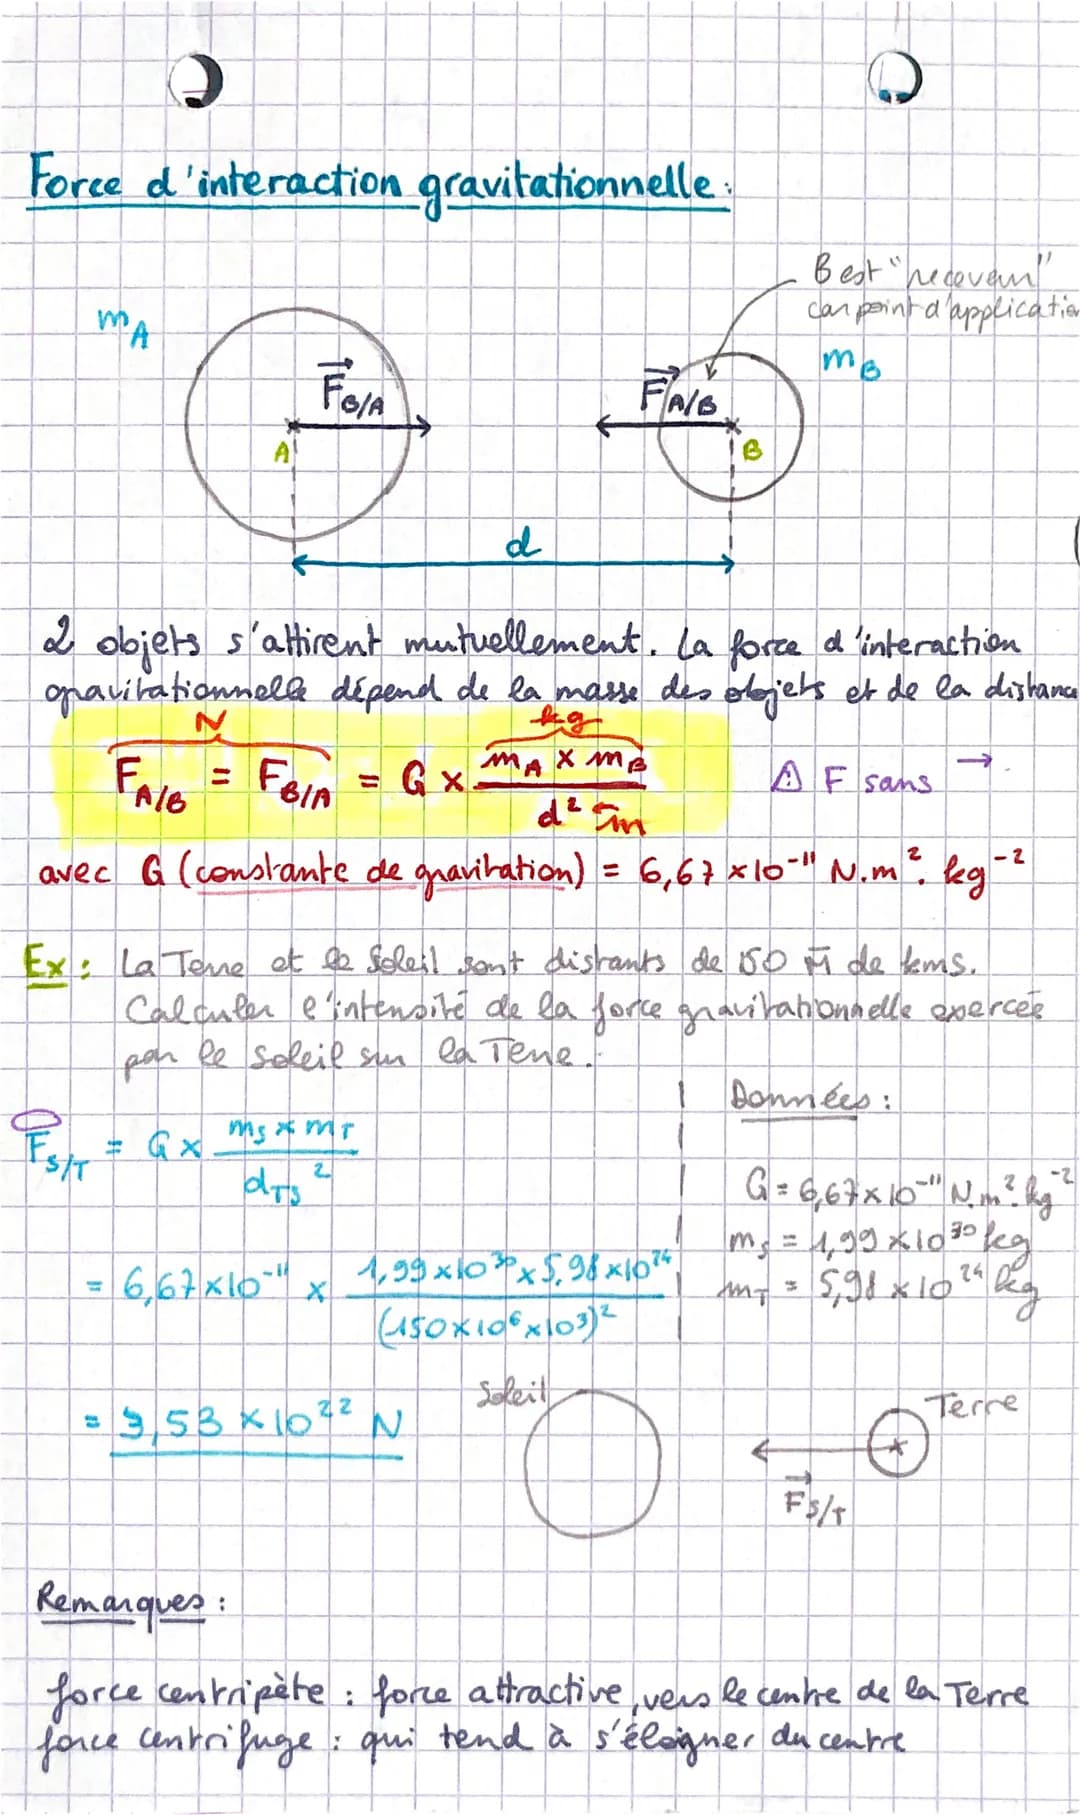 Force d'interaction gravitationnelle :
B est "receveur"
car point d'application
mA
mB
F B/A
F A/B
A
B
d
2 objets s'attirent mutuellement. La force d'interaction
gravitationnelle dépend de la masse des objets et de la distance
N
kg
F A/B = F B/A = G × (mA × mB) / d² m
⚠ F sans →
avec G (constante de gravitation) = 6,67 × 10⁻¹¹ N.m².kg⁻²
Ex : La Terre et le Soleil sont distants de 150 M de kms.
Calculer l'intensité de la force gravitationnelle exercée
par le soleil sur la Terre.
Données :
F S/T = G × (mS × mT) / dTS²
G = 6,67 × 10⁻¹¹ N.m².kg⁻²
mS = 1,99 × 10³⁰ kg
= 6,67 × 10⁻¹¹ × (1,99 × 10³⁰ × 5,98 × 10²⁴) / (150 × 10⁶ × 10³)²
mT = 5,98 × 10²⁴ kg
Soleil
Terre
= 3,53 × 10²² N
F S/T
Remarques :
force centripète : force attractive, vers le centre de la Terre
force centrifuge : qui tend à s'éloigner du centre